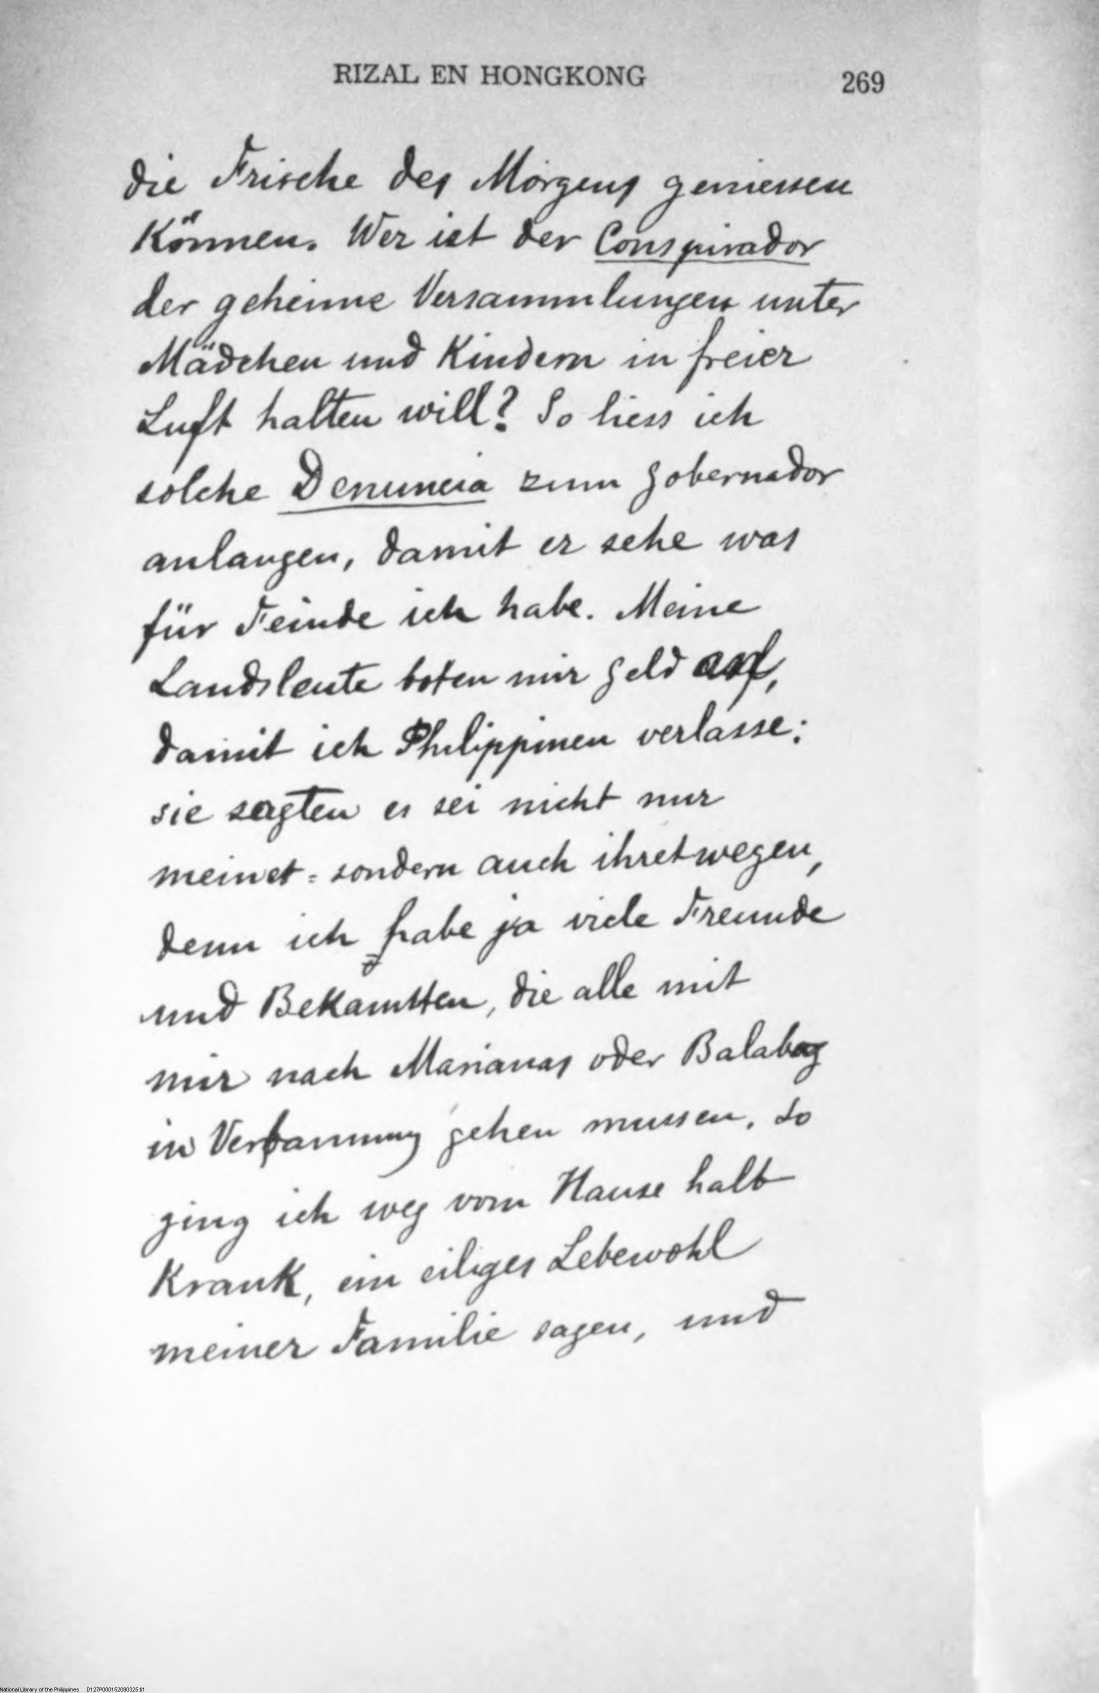 RIZAL EN HONGKONG
269
die Frische des Morgens geniessen
Können. Wer ist der Conspirador
der geheime Versammlungen unter
Mädchen und Kindern in freier
Luft halten will? So liess ich
solche Denuncia zum Gobernador
anlangen, damit er sehe was
für Feinde ich habe. Meine
Landsleute boten mir Geld
damit ich Philippinen verlasse:
sie sagten es sei nicht nur
meinet- sondern auch ihretwegen,
denn ich habe ja viele Freunde
und Bekannten, die alle mit
mir nach Marianas oder Balabag
in Verbannung gehen mussen. So
ging ich weg vom Hause halb
Krank, ein eiliges Lebewohl
meiner Familie sagen, und
National Library of the Philippines